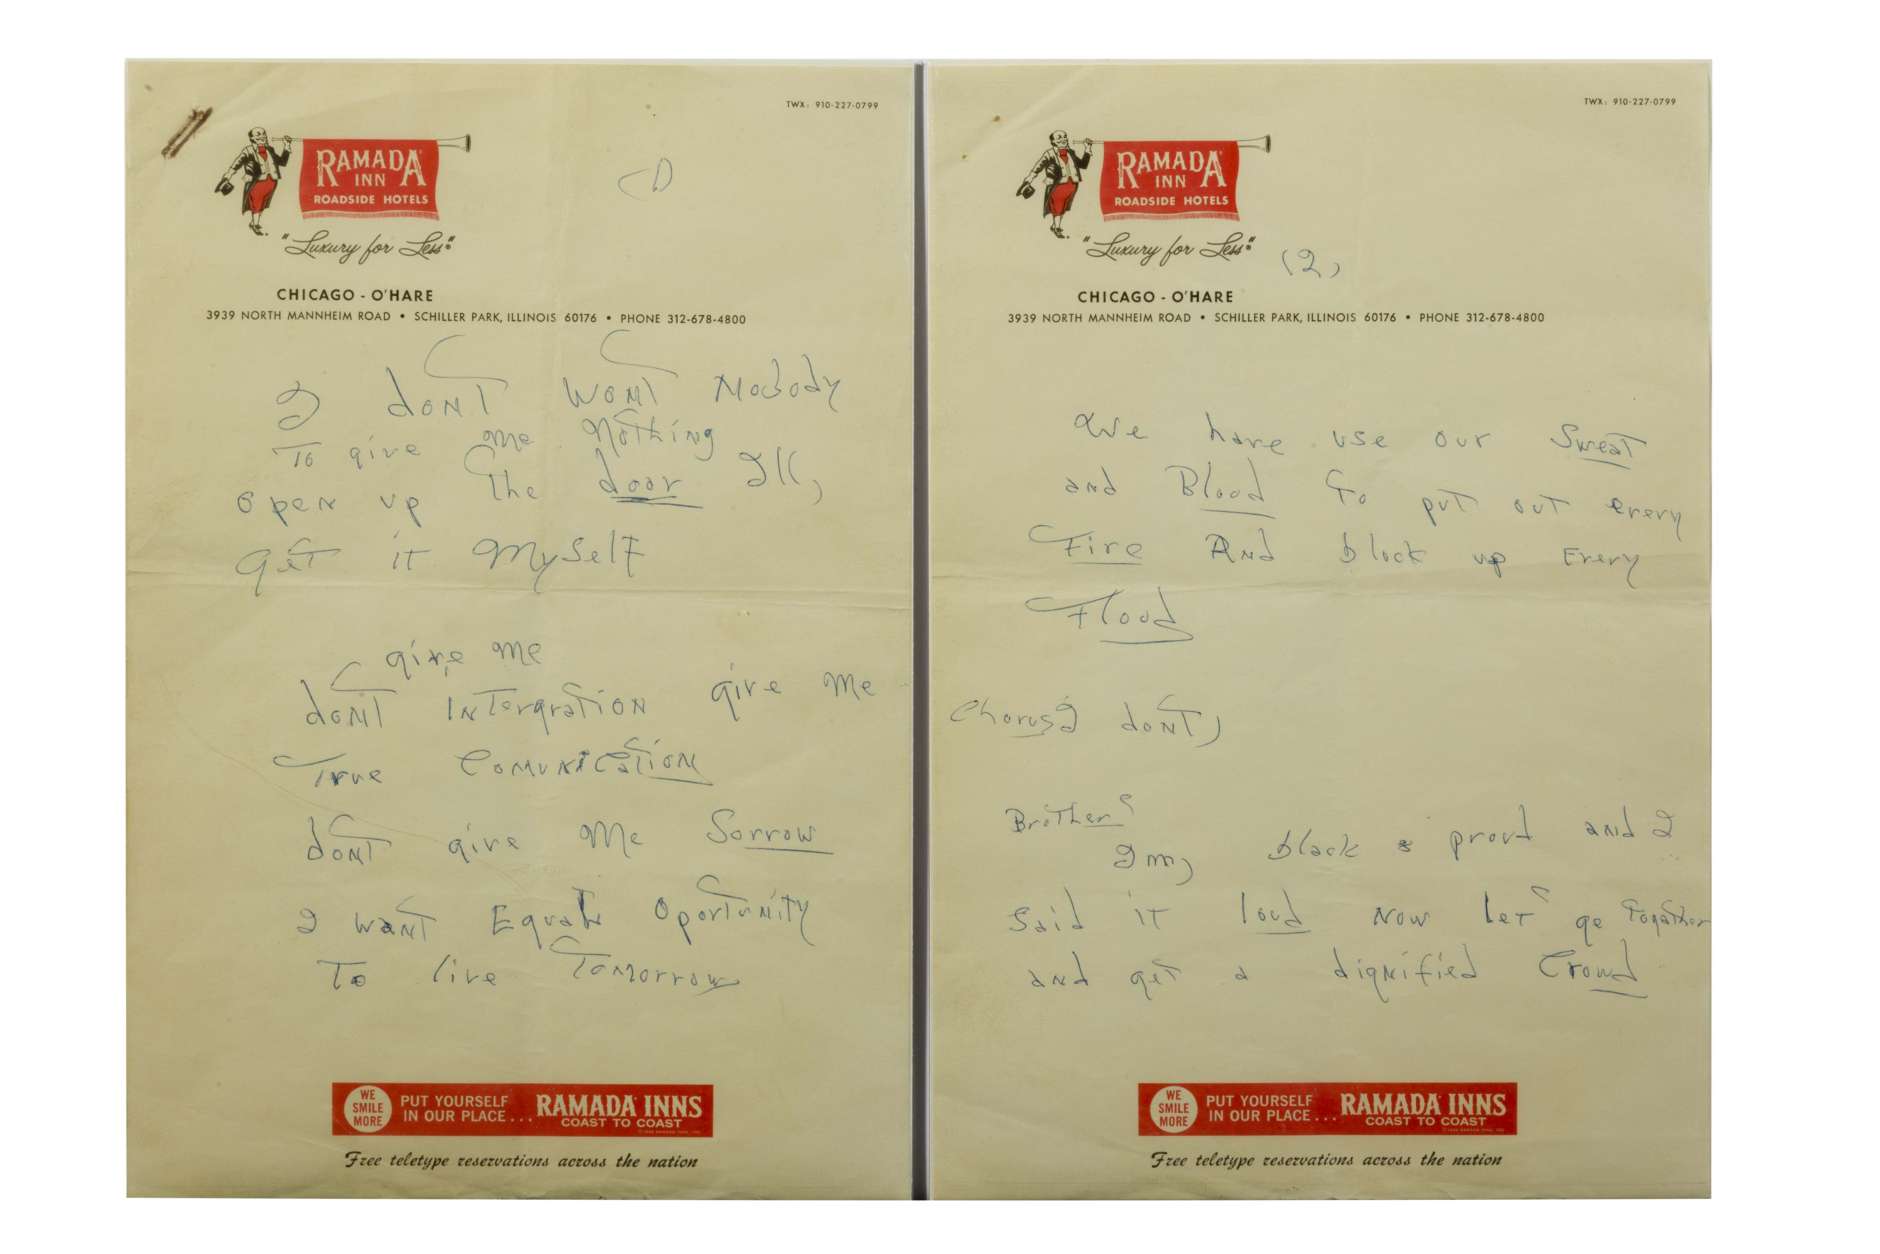 TWX: 910-227-0799
RAMADA
INN
ROADSIDE HOTELS
"Luxury for Less"
(1)
CHICAGO - O'HARE
3939 NORTH MANNHEIM ROAD • SCHILLER PARK, ILLINOIS 60176 • PHONE 312-678-4800
I dont wont Nobody
To give me nothing
open up the door Ill,
Get it Myself
give me
dont Intergration give me
True Comunication
dont give Me Sorrow
I want Equal Oportunity
To live Tomorrow
WE SMILE MORE
PUT YOURSELF IN OUR PLACE...
RAMADA INNS
COAST TO COAST
Free teletype reservations across the nation
TWX: 910-227-0799
RAMADA
INN
ROADSIDE HOTELS
"Luxury for Less"
(2)
CHICAGO - O'HARE
3939 NORTH MANNHEIM ROAD • SCHILLER PARK, ILLINOIS 60176 • PHONE 312-678-4800
We have use our Sweat
and Blood To put out every
Fire And block up Every
Flood
Chorus I dont,
Brother's
Im, black & proud and I
Said it loud Now let's ge Togather
and get a dignified Crowd
WE SMILE MORE
PUT YOURSELF IN OUR PLACE...
RAMADA INNS
COAST TO COAST
Free teletype reservations across the nation